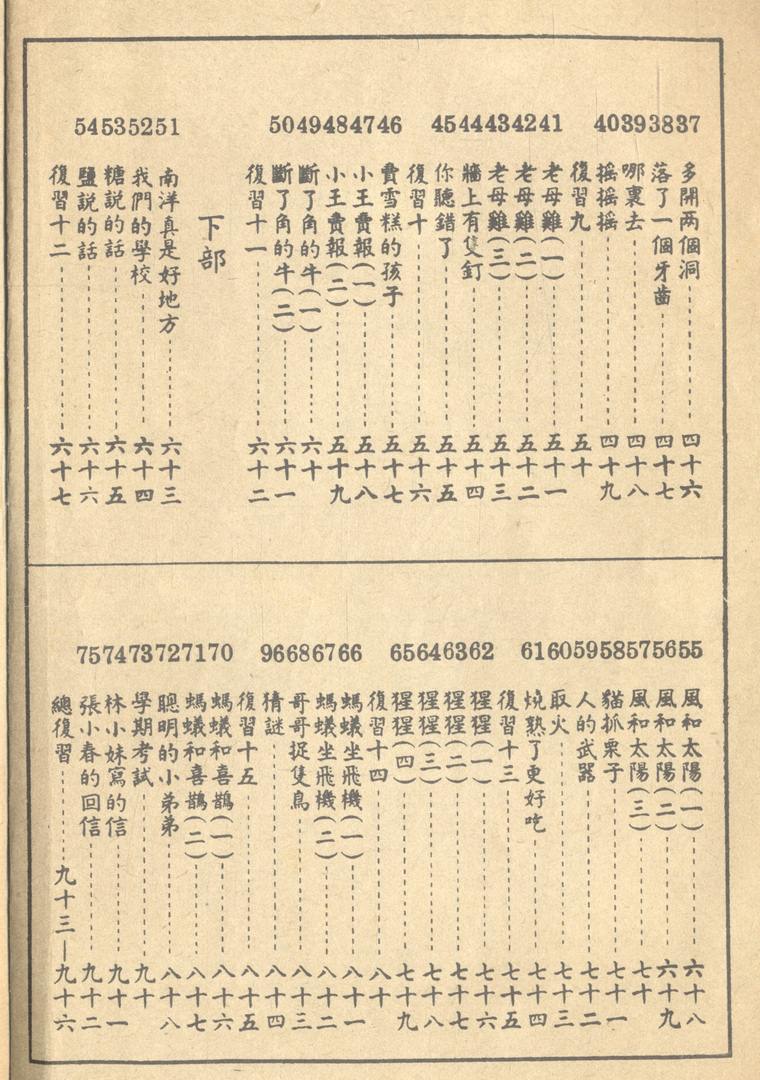 37 多開两個洞 四十六
38 落了一個牙齒 四十七
39 哪裏去 四十八
40 摇摇摇 四十九
復習九 五十
41 老母雞(一) 五十一
42 老母雞(二) 五十二
43 老母雞(三) 五十三
44 牆上有隻釘 五十四
45 你聽錯了 五十五
復習十 五十六
46 賣雪糕的孩子 五十七
47 小王賣報(一) 五十八
48 小王賣報(二) 五十九
49 斷了角的牛(一) 六十
50 斷了角的牛(二) 六十一
復習十一 六十二
下部
51 南洋真是好地方 六十三
52 我們的學校 六十四
53 糖說的話 六十五
54 鹽說的話 六十六
復習十二 六十七
55 風和太陽(一) 六十八
56 風和太陽(二) 六十九
57 風和太陽(三) 七十
58 貓抓栗子 七十一
59 人的武器 七十二
60 取火 七十三
61 燒熟了更好吃 七十四
復習十三 七十五
62 猩猩(一) 七十六
63 猩猩(二) 七十七
64 猩猩(三) 七十八
65 猩猩(四) 七十九
復習十四 八十
66 螞蟻坐飛機(一) 八十一
67 螞蟻坐飛機(二) 八十二
68 哥哥捉隻鳥 八十三
96 猜謎 八十四
復習十五 八十五
70 螞蟻和喜鵲(一) 八十六
71 螞蟻和喜鵲(二) 八十七
72 聰明的小弟弟 八十八
73 學期考試 九十
74 林小妹寫的信 九十一
75 張小春的回信 九十二
總復習 九十三—九十六